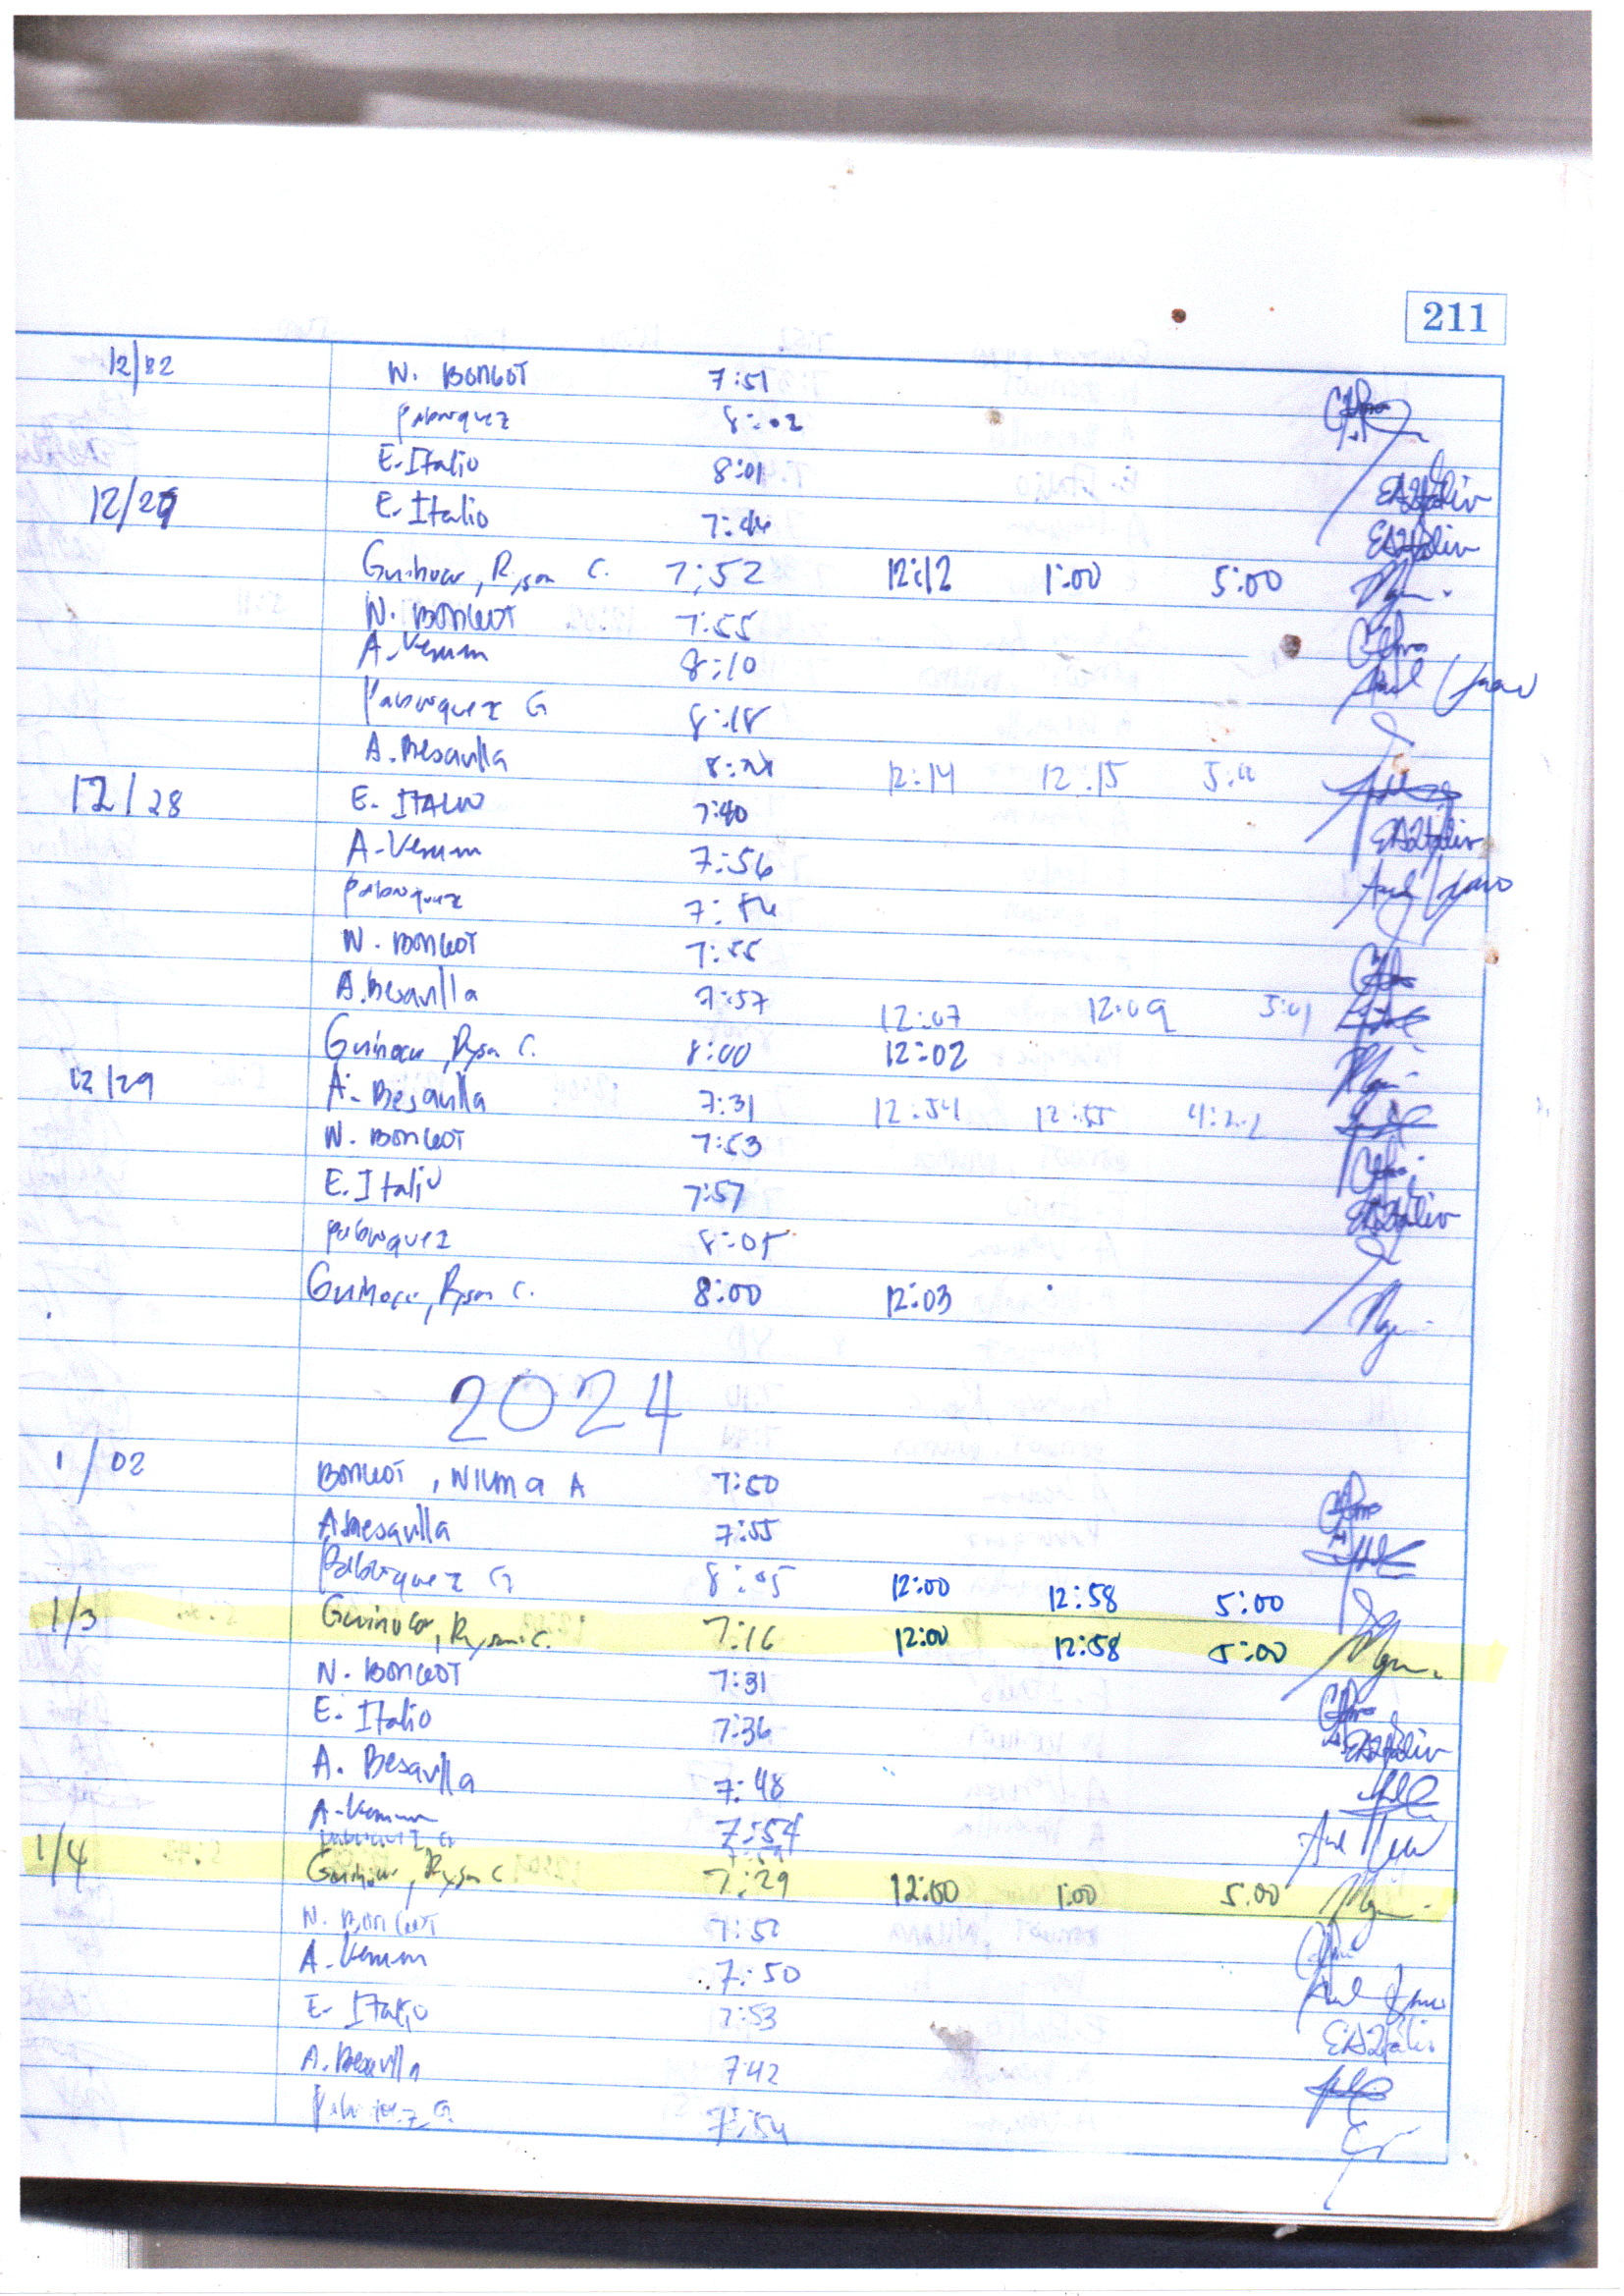 211
12/22 N. BONGOT 7:51
Palorquez 8:02
E. Italio 8:01
12/27 E. Italio 7:44
Guihocor, Ryson C. 7:52 12:12 1:00 5:00
N. BONGOT 7:55
A. Verum 8:10
Palorquez G 8:18
A. Besavilla 8:28 12:14 12:15 5:00
12/28 E. ITALIO 7:40
A. Verum 7:56
Palorquez 7:54
N. BONGOT 7:55
A. Besavilla 7:57 12:07 12:09 5:01
Guihocor, Ryson C. 8:00 12:02
12/29 A. Besavilla 7:31 12:54 12:55 4:22
N. BONGOT 7:53
E. Italio 7:57
Palorquez 8:05
Guihocor, Ryson C. 8:00 12:03
2024
1/02 BONGOT, NILMA A 7:50
A. Besavilla 7:55
Palorquez G 8:05 12:00 12:58 5:00
1/3 Guihocor, Ryson C. 7:16 12:00 12:58 5:00
N. BONGOT 7:31
E. Italio 7:36
A. Besavilla 7:48
A. Verum 7:54
1/4 Guihocor, Ryson C 7:29 12:00 1:00 5:00
N. BONGOT 7:52
A. Verum 7:50
E. Italio 7:53
A. Besavilla 7:42
Palorquez G. 7:54